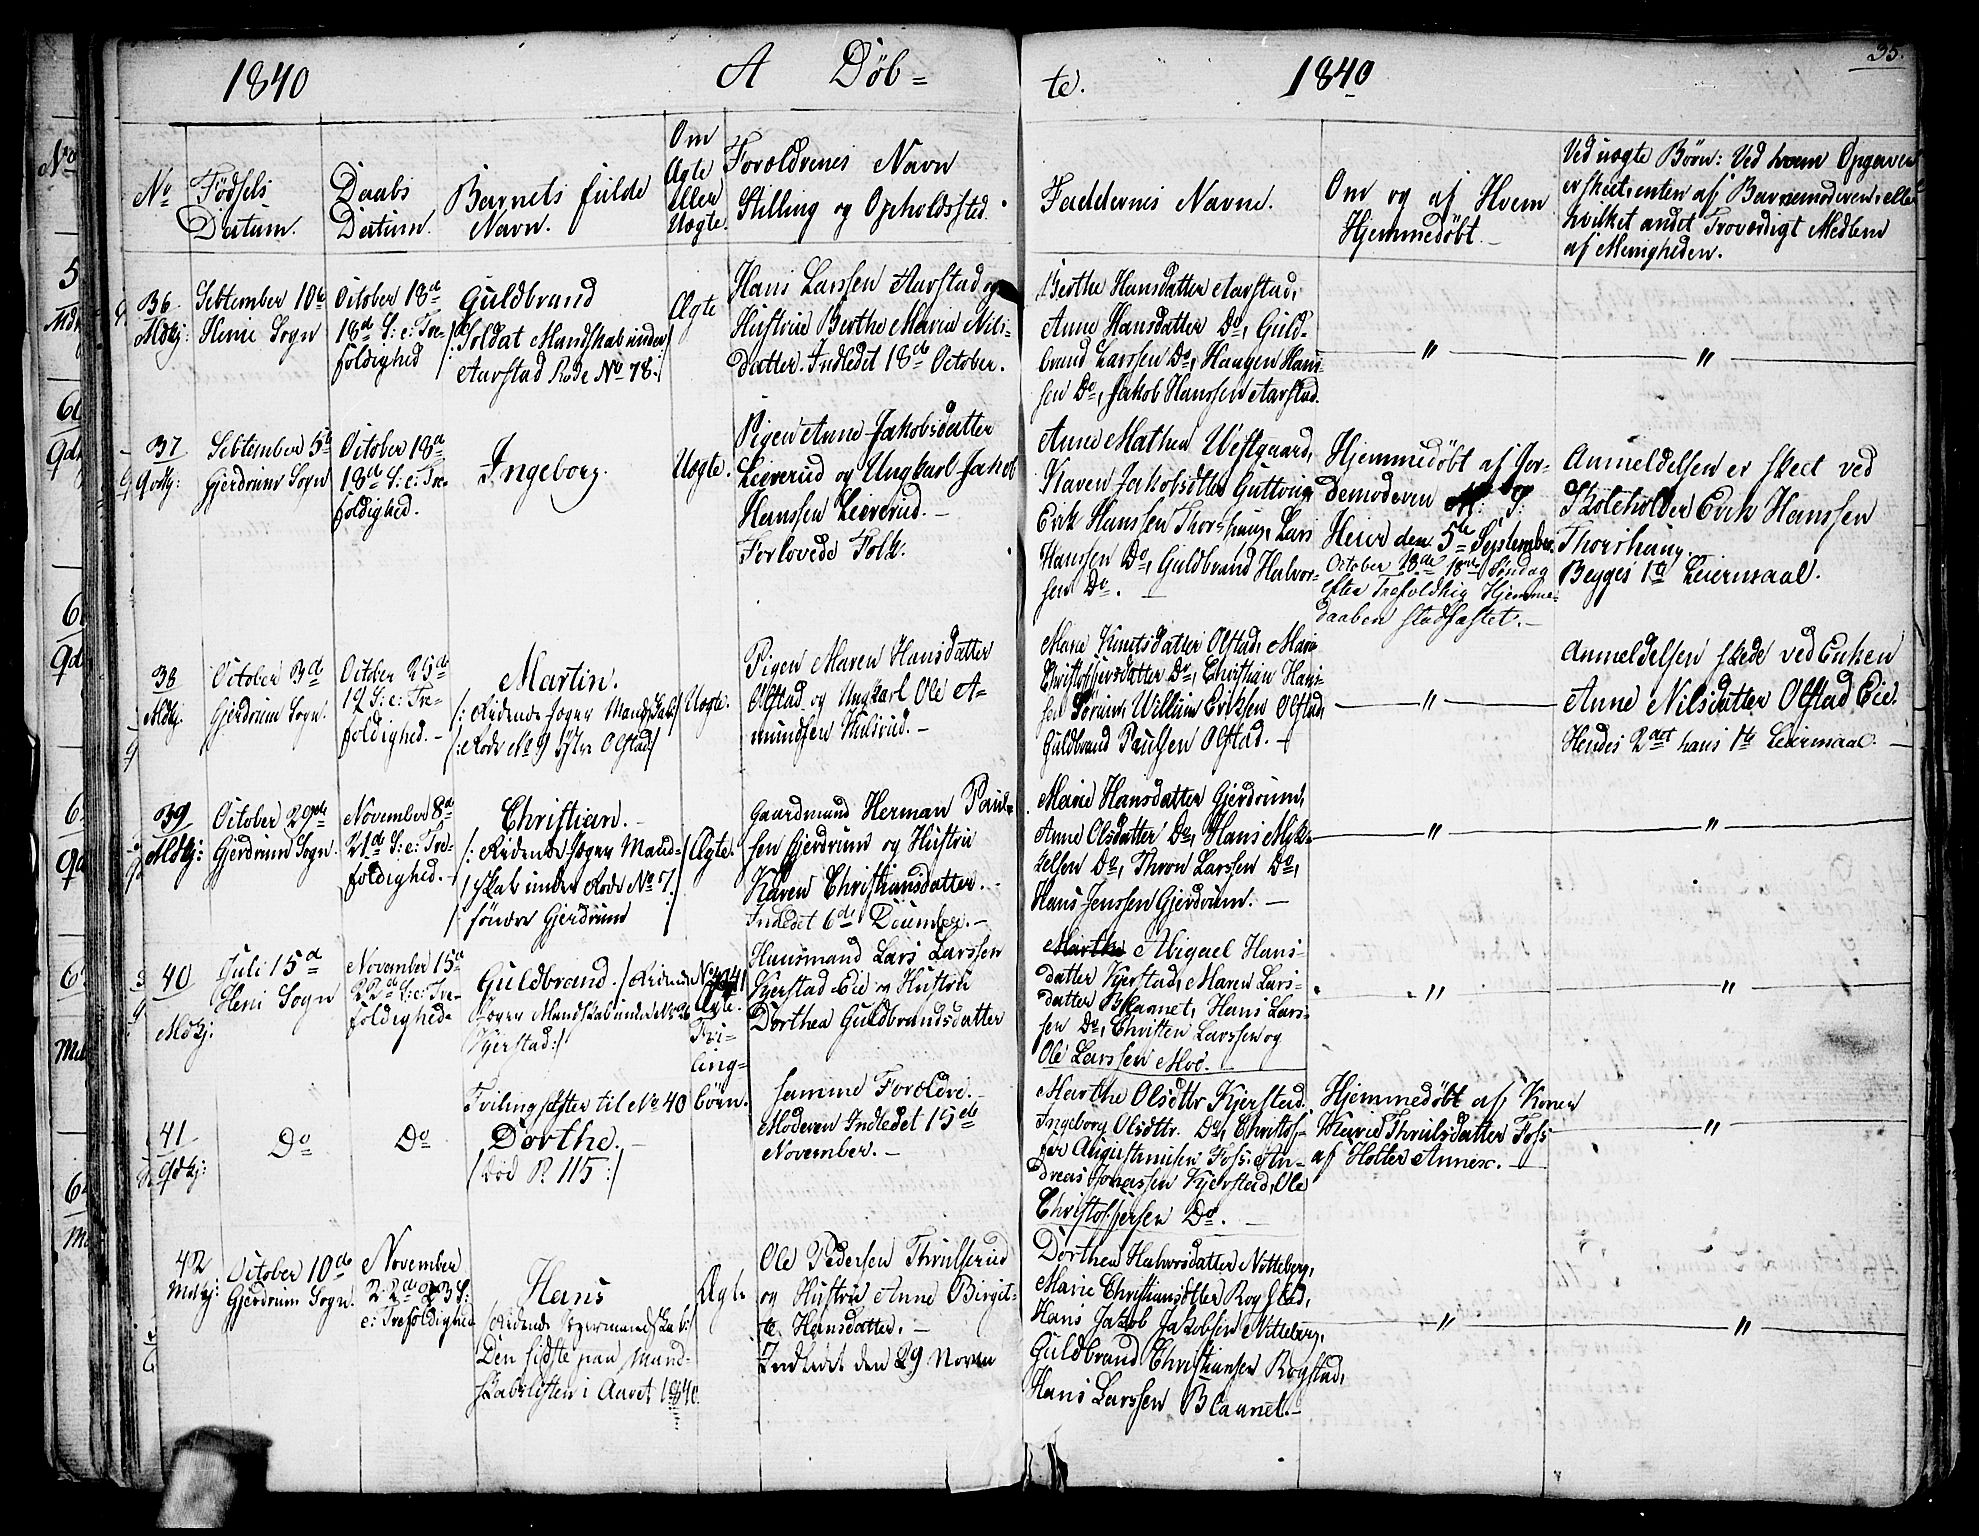 1840 A Döb=
te. 1840 35.
No
Födsels
Datum.
Daabs
Datum.
Barnets fulde
Navn.
Om
Ægte
eller
Uægte.
Forældrenes Navn
Stilling og Opholdssted.
Faddernes Navne.
Om og af Hvem
Hjemmedöbt.
Ved uægte Börn: Ved hvem Opgaven
er skeet, enten af Barnemoderen, eller
hvilket andet Troværdigt Medlem
af Menigheden.
36
Mdkj:
September 10de
Heni Sogn
October 18de
18de S: e: Tre-
foldighed
Guldbrand
/: Soldat Mandskab under
Aarstad Rode No 78:/
Ægte
Hans Larssen Aarstad og
Hustrue Berthe Maren Nils-
datter. Indledet 18de October.
Berthe Hansdatter Aarstad,
Anne Hansdatter Do, Guld-
brand Larssen Do, Haagen Hans-
sen Do, Jakob Hanssen Aarstad.
"
"
37
Qvdkj:
September 5te
Gjerdrum Sogn
October 18de
18de S: e: Tre-
foldighed.
Ingeborg.
Uægte.
Pigen Anne Jakobsdatter
Leierud og Ungkarl Jakob
Hanssen Leierud.
Forlovede Folk.
Anne Mathea Westgaard,
Karen Jakobsdtter Guttorm
Erik Hanssen Thorshaug, Lars
Hanssen Do, Guldbrand Halvor-
sen Do.
Hjemmedöbt af Jor-
demoderen
Heier den 5te September.
October 18de 18de Söndag
efter Trefoldhig Hjemme-
daaben stadfæstet.
Anmeldelsen er skeet ved
Skoleholder Erik Hanssen
Thorshaug.
Begges 1te Leiermaal.
38
Mdkj.
October 3de
Gjerdrum Sogn.
October 25de
19 S: e: Tre-
foldighed.
Martin.
/: Ridende Jæger Mandskab:/
/: Rode No 9 Olstad/
Uægte.
Pigen Maren Hansdatter
Olstad og Ungkarl Ole A-
mundsen Hulsrud.
Marie Knutsdatter Olstad, Maria
Christophersdatter Do, Christian Han-
sen Sörum, Willum Eriksen Olstad,
Guldbrand Paulsen Olstad.
"
Anmeldelsen skede ved Enken
Anne Nilsdatter Olstad Eie.
Hendes 2det hans 1te Leiermaal.
39
Mdkj:
October 29de
Gjerdrum Sogn.
November 8de
21de S: e: Tre-
foldighed.
Christian.
/: Ridende Jæger Mand-
skab under Rode No 7.
söndre Gjerdrum
Ægte.
Gaardmand Herman Paul-
sen Gjerdrum og Hustru
Karen Christiansdatter.
Indledet 6de December.
Marie Hansdatter Gjerdrum,
Anne Olsdatter Do, Hans Myk-
kelsen Do, Thron Larssen Do,
Hans Jenssen Gjerdrum.
"
"
40
Mdkj:
Juli 15de
Heni Sogn
November 15de
22de S: e: Tre-
foldighed.
Guldbrand. /: Ridende
Jæger Mandskab under No 26
Kjerstad:/
No 40 41
Ægte.
Tvi-
ling-
börn.
Huusmand Lars Larssen
Kjerstad Eie og Hustrue
Dorthea Guldbrandsdatter
Abigael Hans-
datter Kjerstad, Maren Lars-
datter Blaanet, Hans Lars-
sen Do, Christen Larssen og
Ole Larssen Moe.
"
"
41
Qvdkj:
Do
Do
Tvilingsöster til No 40
Dorthe.
/död P. 115:/
samme Forældre.
Moderen Indledet 15de
November.
Marthe Olsdttr Kjerstad.
Ingeborg Olsdttr. Do, Christof-
fer Augustinusen Foss, An-
dreas Jonassen Kjerstad, Ole
Christophersen Do.
Hjemmedöbt af Konen
Marie Thrulsdatter Foss
af Holter Annex.
"
42
Mdkj:
October 10de
Gjerdrum Sogn.
November
22de 23 S:
e: Trefoldighed
Hans
/Ridende Jægermandskab:
Den sidste paa Mand-
skabslisten i Aaret 1840
Ægte
Ole Pedersen Thrulserud
og Hustrue Anne Birgit-
te Hansdatter.
Indledet den 29 Novem
Dorthea Halvorsdatter Nitteberg,
Marie Christiansdtter Rogstad,
Hans Jakob Jakobsen Nitteberg,
Guldbrand Christiansen Rogstad,
Hans Larssen Blaanet.
"
"